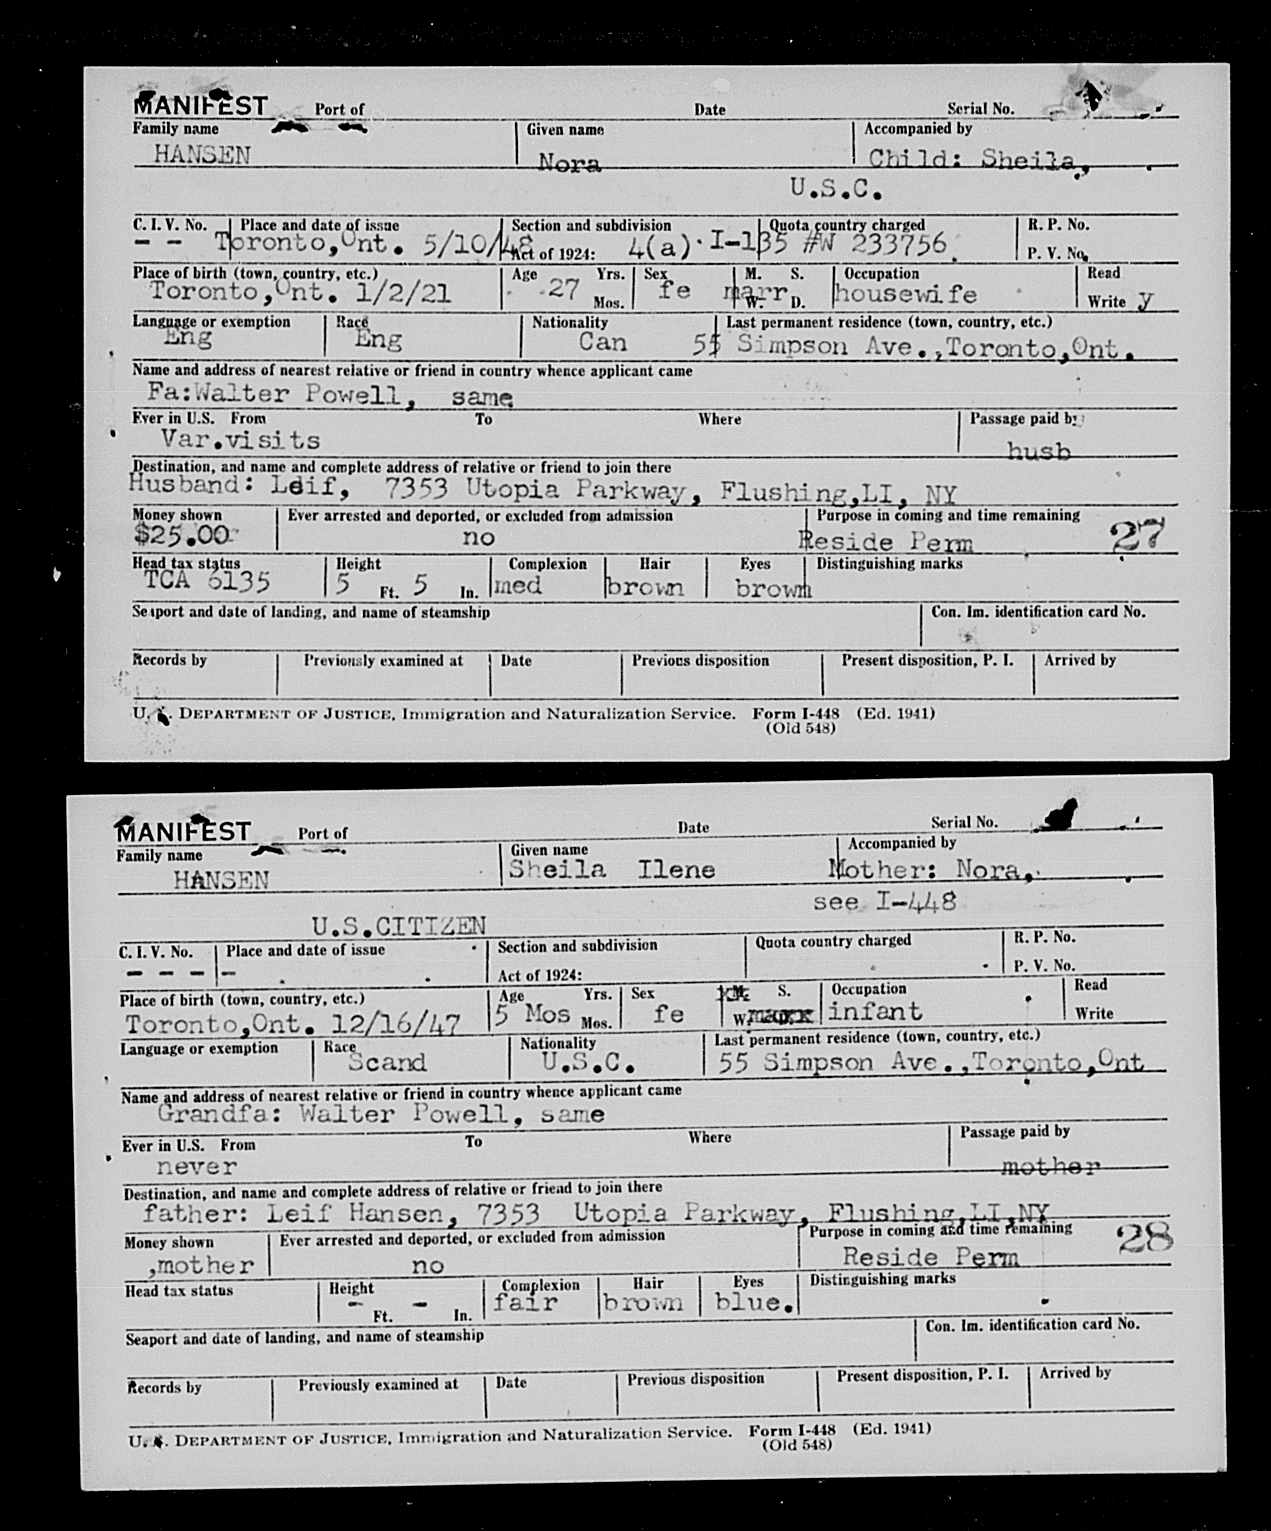 MANIFEST Port of Date Serial No.
Family name Given name Accompanied by
HANSEN Nora Child: Sheila,
U.S.C.
C. I. V. No. Place and date of issue Section and subdivision Quota country charged R. P. No.
-- Toronto,Ont. 5/10/48 Act of 1924: 4(a) I-135 #W 233756 P. V. No.
Place of birth (town, country, etc.) Age Yrs. Sex M. S. Occupation Read
Toronto,Ont. 1/2/21 27 Mos. fe marr W. D. housewife Write y
Language or exemption Race Nationality Last permanent residence (town, country, etc.)
Eng Eng Can 55 Simpson Ave.,Toronto,Ont.
Name and address of nearest relative or friend in country whence applicant came
Fa:Walter Powell, same
Ever in U.S. From To Where Passage paid by
Var.visits husb
Destination, and name and complete address of relative or friend to join there
Husband: Leif, 7353 Utopia Parkway, Flushing,LI, NY
Money shown Ever arrested and deported, or excluded from admission Purpose in coming and time remaining
$25.00 no Reside Perm 27
Head tax status Height Complexion Hair Eyes Distinguishing marks
TCA 6135 5 Ft. 5 In. med brown brown
Seaport and date of landing, and name of steamship Con. Im. identification card No.
Records by Previously examined at Date Previous disposition Present disposition, P. I. Arrived by
U. S. DEPARTMENT OF JUSTICE, Immigration and Naturalization Service. Form I-448 (Ed. 1941)
(Old 548)
MANIFEST Port of Date Serial No.
Family name Given name Accompanied by
HANSEN Sheila Ilene Mother: Nora,
see I-448
U.S.CITIZEN
C. I. V. No. Place and date of issue Section and subdivision Quota country charged R. P. No.
- - - - Act of 1924: P. V. No.
Place of birth (town, country, etc.) Age Yrs. Sex M. S. Occupation Read
Toronto,Ont. 12/16/47 5 Mos Mos. fe W. infant Write
Language or exemption Race Nationality Last permanent residence (town, country, etc.)
Scand U.S.C. 55 Simpson Ave.,Toronto,Ont
Name and address of nearest relative or friend in country whence applicant came
Grandfa: Walter Powell, same
Ever in U.S. From To Where Passage paid by
never mother
Destination, and name and complete address of relative or friend to join there
father: Leif Hansen, 7353 Utopia Parkway, Flushing,LI,NY
Money shown Ever arrested and deported, or excluded from admission Purpose in coming and time remaining
,mother no Reside Perm 28
Head tax status Height Complexion Hair Eyes Distinguishing marks
- Ft. - In. fair brown blue.
Seaport and date of landing, and name of steamship Con. Im. identification card No.
Records by Previously examined at Date Previous disposition Present disposition, P. I. Arrived by
U. S. DEPARTMENT OF JUSTICE, Immigration and Naturalization Service. Form I-448 (Ed. 1941)
(Old 548)